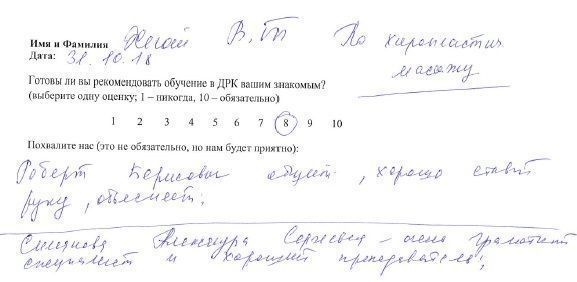 Имя и Фамилия Негай В. По хиропластич.
Дата: 31.10.18 масажу
Готовы ли вы рекомендовать обучение в ДРК вашим знакомым?
(выберите одну оценку; 1 – никогда, 10 – обязательно)
1 2 3 4 5 6 7 8 9 10
Похвалите нас (это не обязательно, но нам будет приятно):
Роберт Борисович, хорошо ставит
руку, объясняет;
Смирнова Александра Сергеевна – грамотный
специалист и хороший преподаватель;